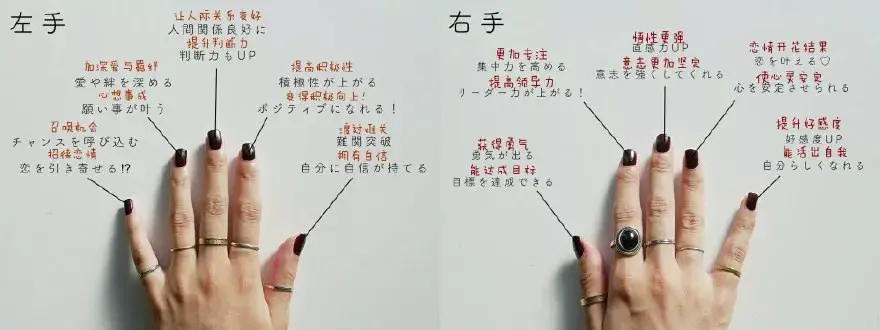 左手
让人际关系变好
人間関係良好に
提升判断力
判断力もUP
加深爱与羁绊
愛や絆を深める
心想事成
願い事が叶う
提高积极性
積極性が上がる
变得积极向上!
ポジティブになれる!
召唤机会
チャンスを呼び込む
招桃恋情
恋を引き寄せる!?
渡过难关
難関突破
拥有自信
自分に自信が持てる
右手
更加专注
集中力を高める
提高领导力
リーダー力が上がる!
悟性更强
直感力UP
意志更加坚定
意志を強くしてくれる
恋情开花结果
恋を叶える♡
使心灵安定
心を安定させられる
获得勇气
勇気が出る
能达成目标
目標を達成できる
提升好感度
好感度UP
能活出自我
自分らしくなれる